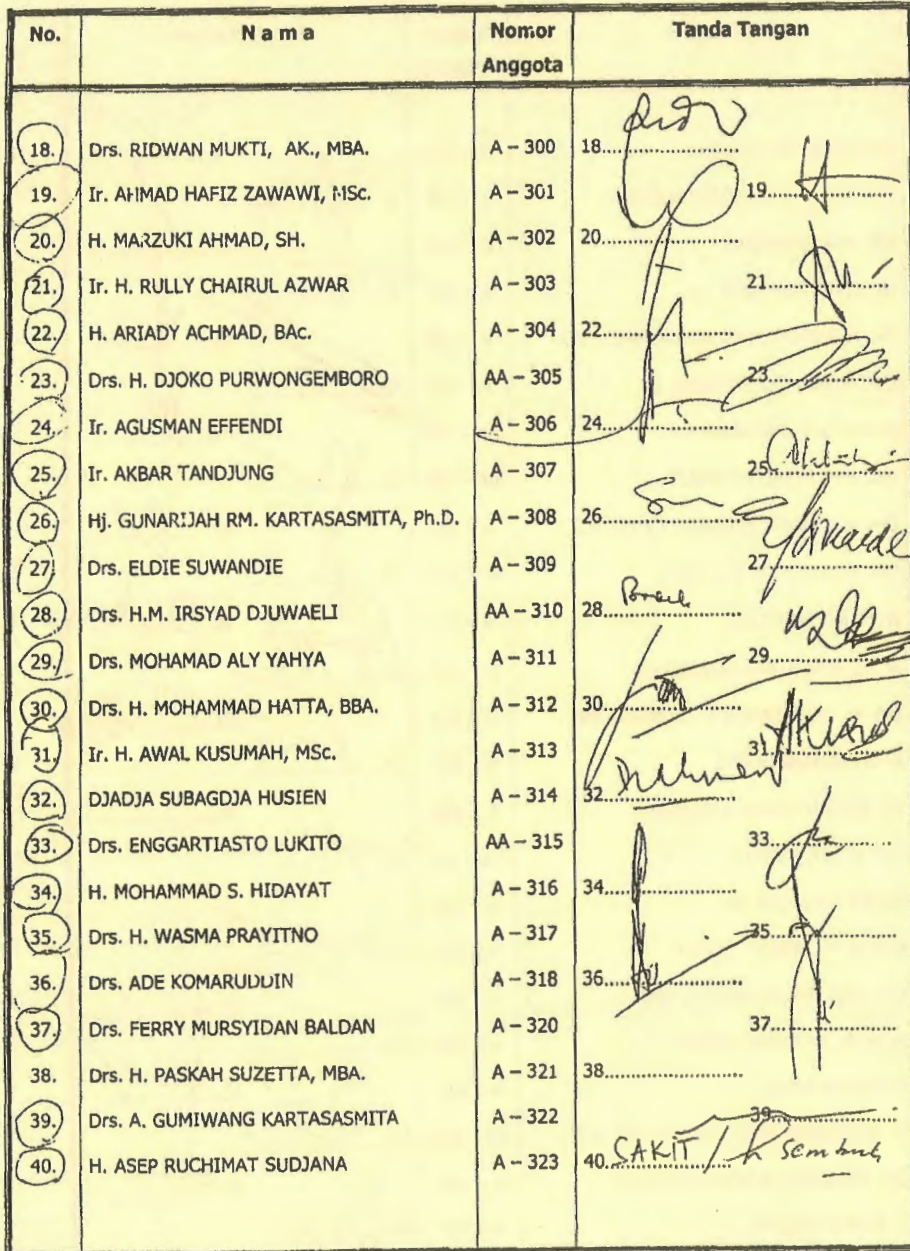 No. N a m a Nomor Anggota Tanda Tangan
18. Drs. RIDWAN MUKTI, AK., MBA. A – 300 18....................
19. Ir. AHMAD HAFIZ ZAWAWI, MSc. A – 301 19....................
20. H. MARZUKI AHMAD, SH. A – 302 20....................
21. Ir. H. RULLY CHAIRUL AZWAR A – 303 21....................
22. H. ARIADY ACHMAD, BAc. A – 304 22....................
23. Drs. H. DJOKO PURWONGEMBORO AA – 305 23....................
24. Ir. AGUSMAN EFFENDI A – 306 24....................
25. Ir. AKBAR TANDJUNG A – 307 25....................
26. Hj. GUNARIJAH RM. KARTASASMITA, Ph.D. A – 308 26....................
27. Drs. ELDIE SUWANDIE A – 309 27....................
28. Drs. H.M. IRSYAD DJUWAELI AA – 310 28....................
29. Drs. MOHAMAD ALY YAHYA A – 311 29....................
30. Drs. H. MOHAMMAD HATTA, BBA. A – 312 30....................
31. Ir. H. AWAL KUSUMAH, MSc. A – 313 31....................
32. DJADJA SUBAGDJA HUSIEN A – 314 32....................
33. Drs. ENGGARTIASTO LUKITO AA – 315 33....................
34. H. MOHAMMAD S. HIDAYAT A – 316 34....................
35. Drs. H. WASMA PRAYITNO A – 317 35....................
36. Drs. ADE KOMARUDDIN A – 318 36....................
37. Drs. FERRY MURSYIDAN BALDAN A – 320 37....................
38. Drs. H. PASKAH SUZETTA, MBA. A – 321 38....................
39. Drs. A. GUMIWANG KARTASASMITA A – 322 39....................
40. H. ASEP RUCHIMAT SUDJANA A – 323 40.................... SAKIT / sembuh